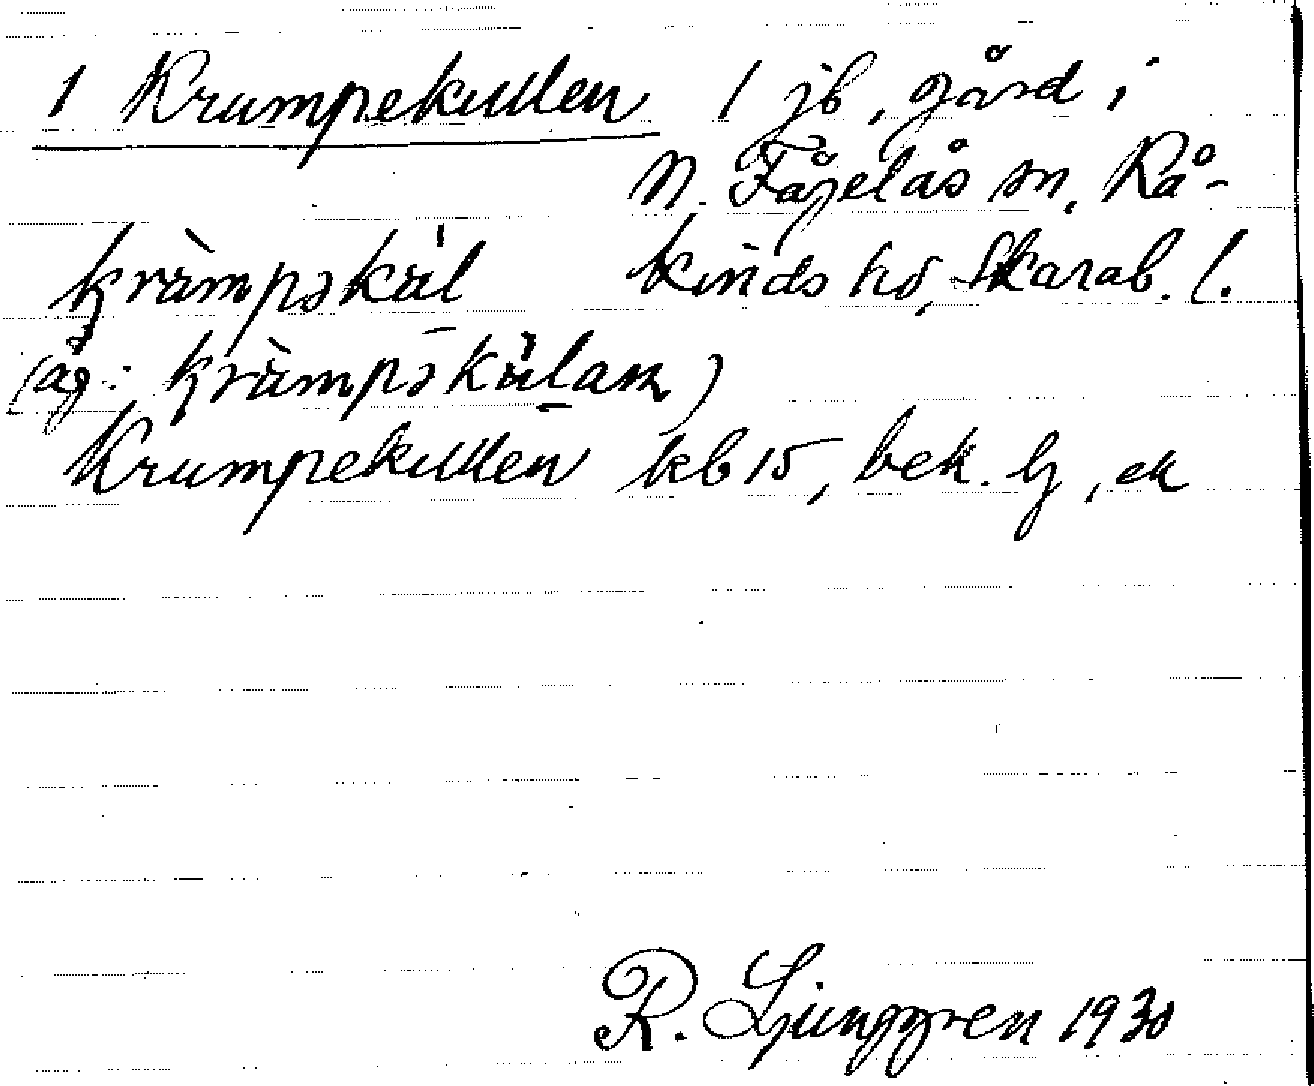 1 Krumpekullen 1 jb, gård i
N. Fågelås sn, Kå-
kinds hd, Skarab. l.
krùmpəkúl
(äg: krùmpəkúlan)
Krumpekullen kb 15, bek. lj, ek
R. Ljunggren 1930